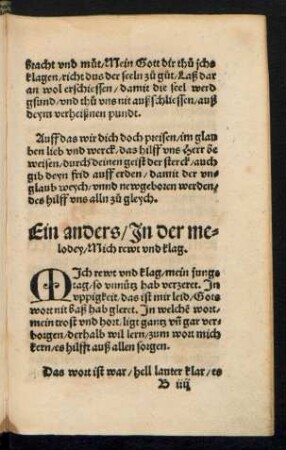 bracht vnd můt/Mein Gott dir thů jchs
klagen/richt dus der seeln zů gůt/Laß dar
an wol erschiessen/damit die seel werd
gsund/vnd thů vns nit auß schliessen/auß
deym verheißnen pundt.
Auff das wir dich doch preisen/im glau
ben lieb vnd werck/das hilff vns Herr be
weisen/durch deinen geist der sterck/auch
gib deyn frid auff erden/damit der vn-
glaub weych/vnnd newgeboren werden/
des hilff vns alln zů gleych.
Ein anders/In der me-
lodey/Mich rewt vnd klag.
MIch rewt vnd klag/mein jungs
tag/so vnnütz hab verzeret. In
vppigkeit/das ist mir leid/Gots
wort nit baß hab gleret. In welchē wort/
mein trost vnd hort/ligt gantz vñ gar ver-
borgen/derhalb wil lern/zum wort mich
kern/es hilfft auß allen sorgen.
Das wort ist war/hell lauter klar/es
B iiij